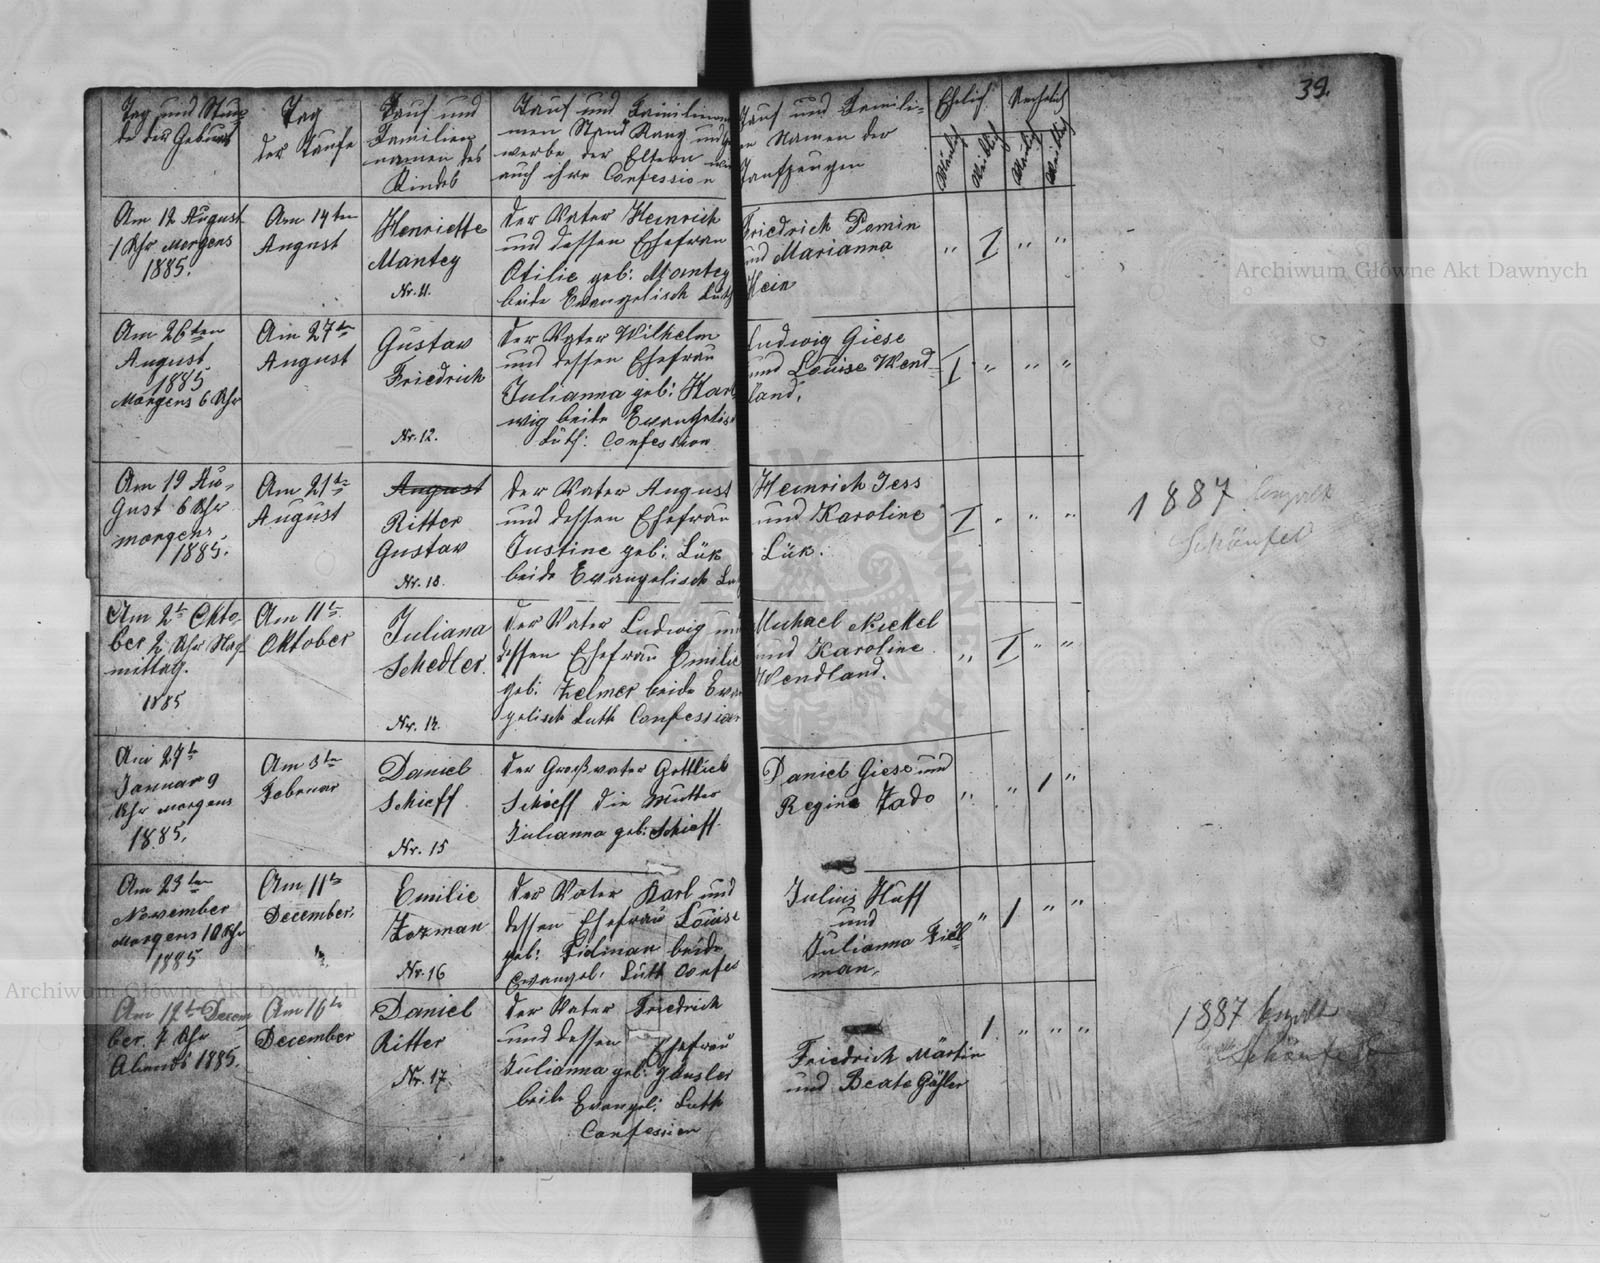 39.
Tag und Stun-
de der Geburt
Tag
der Taufe
Tauf und
Familien
namen des
Kindes
Tauf und Familienna
men Stand Rang und Ge
werbe der Eltern wie
auch ihre Confession
Tauf und Famili-
en Namen der
Taufzeugen
Ehelich
Männlich
Weiblich
Männlich
Weiblich
Am 12 August
1 Uhr Morgens
1885.
Am 14ten
August
Henriette
Mantey
Nr. 11.
der Vater Heinrich
und dessen Ehefrau
Otilie geb: Mantey
beide Evangelisch Luth
Friedrich Pomin
und Marianna
Hein
" I " "
Am 26ten
August
1885
Morgens 6 Uhr
Am 27ten
August
Gustav
Friedrich
Nr. 12.
der Vater Wilhelm
und dessen Ehefrau
Julianna geb: Hart
wig beide Evangelisch
Luth: Confession
Ludwig Giese
und Louise Wend-
land.
I " " "
Am 19 Au-
gust 6 Uhr
morgens.
1885.
Am 21te
August
August
Ritter
Gustav
Nr. 13.
der Vater August
und dessen Ehefrau
Justine geb: Lük
beide Evangelisch Lu
Heinrich Jess
und Karoline
Lük.
I " " "
1887
Schönfel
Am 2te Okto-
ber 2 Uhr Nach
mittag.
1885
Am 11te
Oktober
Juliana
Schedler.
Nr. 14.
der Vater Ludwig und
dessen Ehefrau Emilie
geb: Zelmer beide Evan
gelisch Luth Confession
Michael Nickel
und Karoline
Wendland.
" I " "
Am 27te
Januar 9
Uhr morgens
1885.
Am 3te
Februar
Daniel
Schieff
Nr. 15
der Großvater Gottlieb
Schieff die Mutter
Julianna geb: Schieff.
Daniel Giese und
Regine Zado
" " 1 "
Am 23ten
November
Morgens 10 Uhr
1885
Am 11te
December.
Emilie
Zozman
Nr. 16
der Vater Karl und
dessen Ehefrau Louise
geb: Fidman beide
Evangel: Luth Confes
Julius Huff
und
Julianna Fied
man.
" 1 " "
Am 12te Decem
ber. 7 Uhr
Abends 1885.
Am 16te
December
Daniel
Ritter
Nr. 17
der Vater Friedrich
und dessen Ehefrau
Julianna geb: Gänsler
beide Evangel: Luth
Confession
Friedrich Martin
und Beate Gäsler
1 " " "
1887
Schönfel
Archiwum Główne Akt Dawnych
Archiwum Główne Akt Dawnych